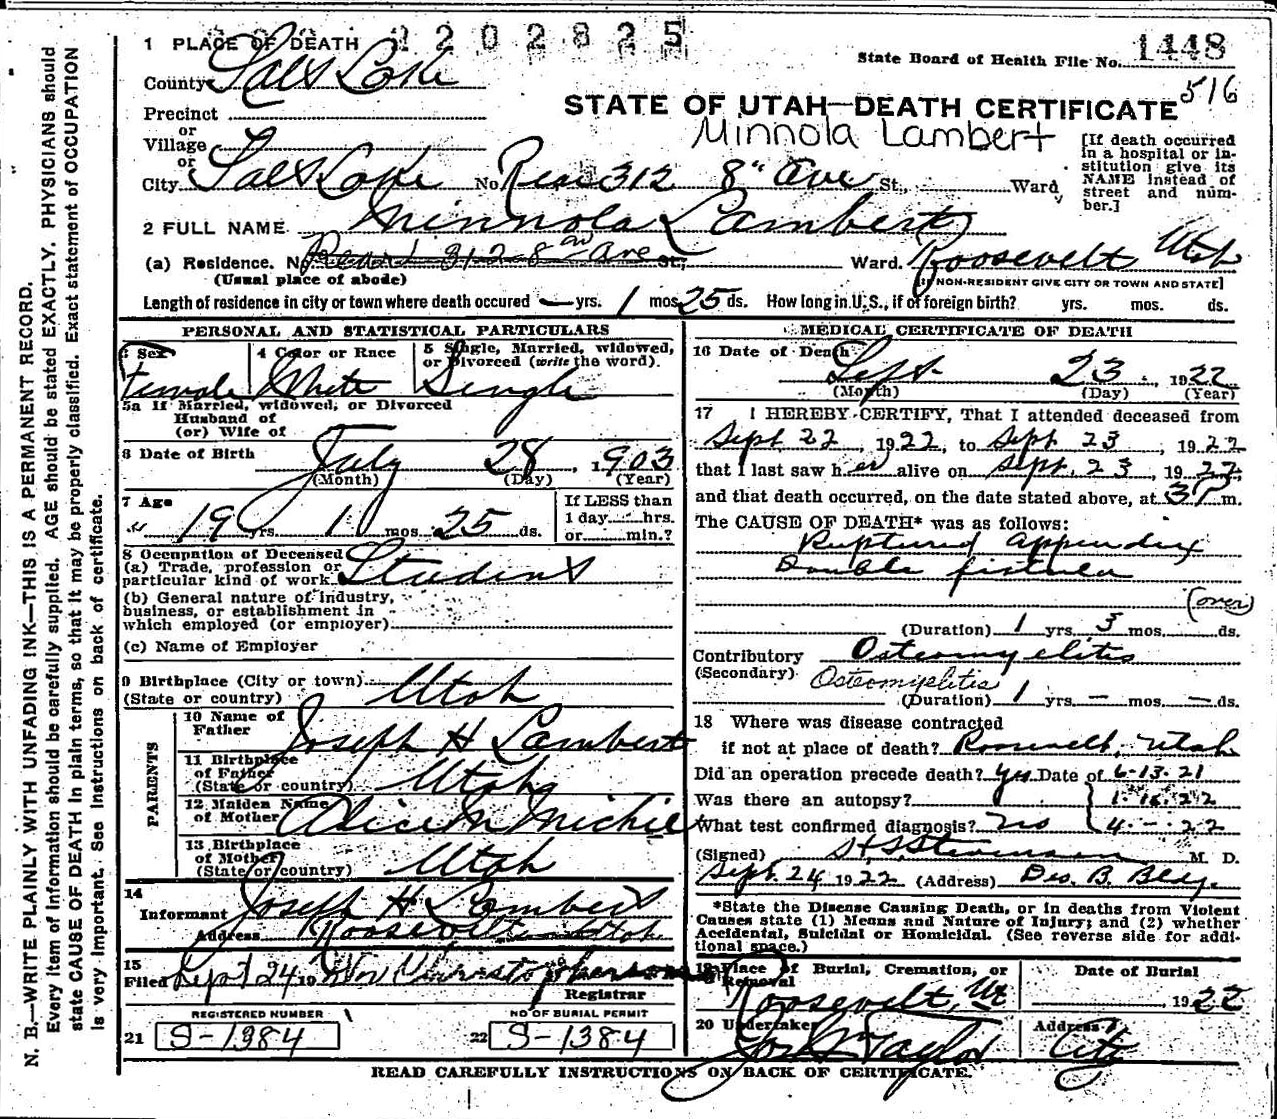 1 PLACE OF DEATH 2202825
State Board of Health File No. 1448
County Salt Lake
516
STATE OF UTAH—DEATH CERTIFICATE
Precinct
or
Village
or
Minnola Lambert
[If death occurred in a hospital or institution give its NAME instead of street and number.]
City Salt Lake No. Res 312 8" Ave St., Ward
2 FULL NAME Minnola Lambert
(a) Residence. No. 312-8 Ave St., Ward. Roosevelt Utah
(Usual place of abode) [If NON-RESIDENT GIVE CITY OR TOWN AND STATE]
Length of residence in city or town where death occured — yrs. 1 mos 25 ds. How long in U.S., if of foreign birth? yrs. mos. ds.
PERSONAL AND STATISTICAL PARTICULARS
3 Sex
Female
4 Color or Race
White
5 Single, Married, widowed, or Divorced (write the word).
Single
5a If Married, widowed, or Divorced
Husband of
(or) Wife of
6 Date of Birth July 28, 1903
(Month) (Day) (Year)
7 Age
19 yrs. 1 mos. 25 ds.
If LESS than
1 day hrs.
or min.?
8 Occupation of Deceased
(a) Trade, profession or
particular kind of work Student
(b) General nature of industry,
business, or establishment in
which employed (or employer)
(c) Name of Employer
9 Birthplace (City or town)
(State or country) Utah
PARENTS
10 Name of
Father Joseph H Lambert
11 Birthplace
of Father
(State or country) Utah
12 Maiden Name
of Mother Alice M Michie
13 Birthplace
of Mother
(State or country) Utah
14
Informant Joseph H Lambert
Address Roosevelt Utah
15
Filed Sept 24 19
Registrar
REGISTERED NUMBER
21 S-1384
NO OF BURIAL PERMIT
22 S-1384
MEDICAL CERTIFICATE OF DEATH
16 Date of Death
Sept 23, 1922
(Month) (Day) (Year)
17 I HEREBY CERTIFY, That I attended deceased from
Sept 22, 1922, to Sept. 23, 1922
that I last saw her alive on Sept. 23, 1922
and that death occurred, on the date stated above, at 3 P m.
The CAUSE OF DEATH* was as follows:
Ruptured appendix
Double fistula
(over)
(Duration) 1 yrs. 3 mos. ds.
Contributory Osteomyelitis
(Secondary) Osteomyelitis
(Duration) 1 yrs. — mos. — ds.
18 Where was disease contracted
if not at place of death? Roosevelt, Utah
Did an operation precede death? Yes Date of 6-13-21
Was there an autopsy? 1-16-22
What test confirmed diagnosis? no 4-—-22
(Signed) M. D.
Sept. 24 1922 (Address) Des. B. Bldg.
*State the Disease Causing Death, or in deaths from Violent
Causes state (1) Means and Nature of Injury; and (2) whether
Accidental, Suicidal or Homicidal. (See reverse side for addi-
tional space.)
19 Place of Burial, Cremation, or
Removal
Roosevelt, Ut
Date of Burial
1922
20 Undertaker
Taylor
Address
City
READ CAREFULLY INSTRUCTIONS ON BACK OF CERTIFICATE.
N. B.—WRITE PLAINLY WITH UNFADING INK—THIS IS A PERMANENT RECORD.
Every item of information should be carefully supplied. AGE should be stated EXACTLY. PHYSICIANS should
state CAUSE OF DEATH in plain terms, so that it may be properly classified. Exact statement of OCCUPATION
is very important. See instructions on back of certificate.